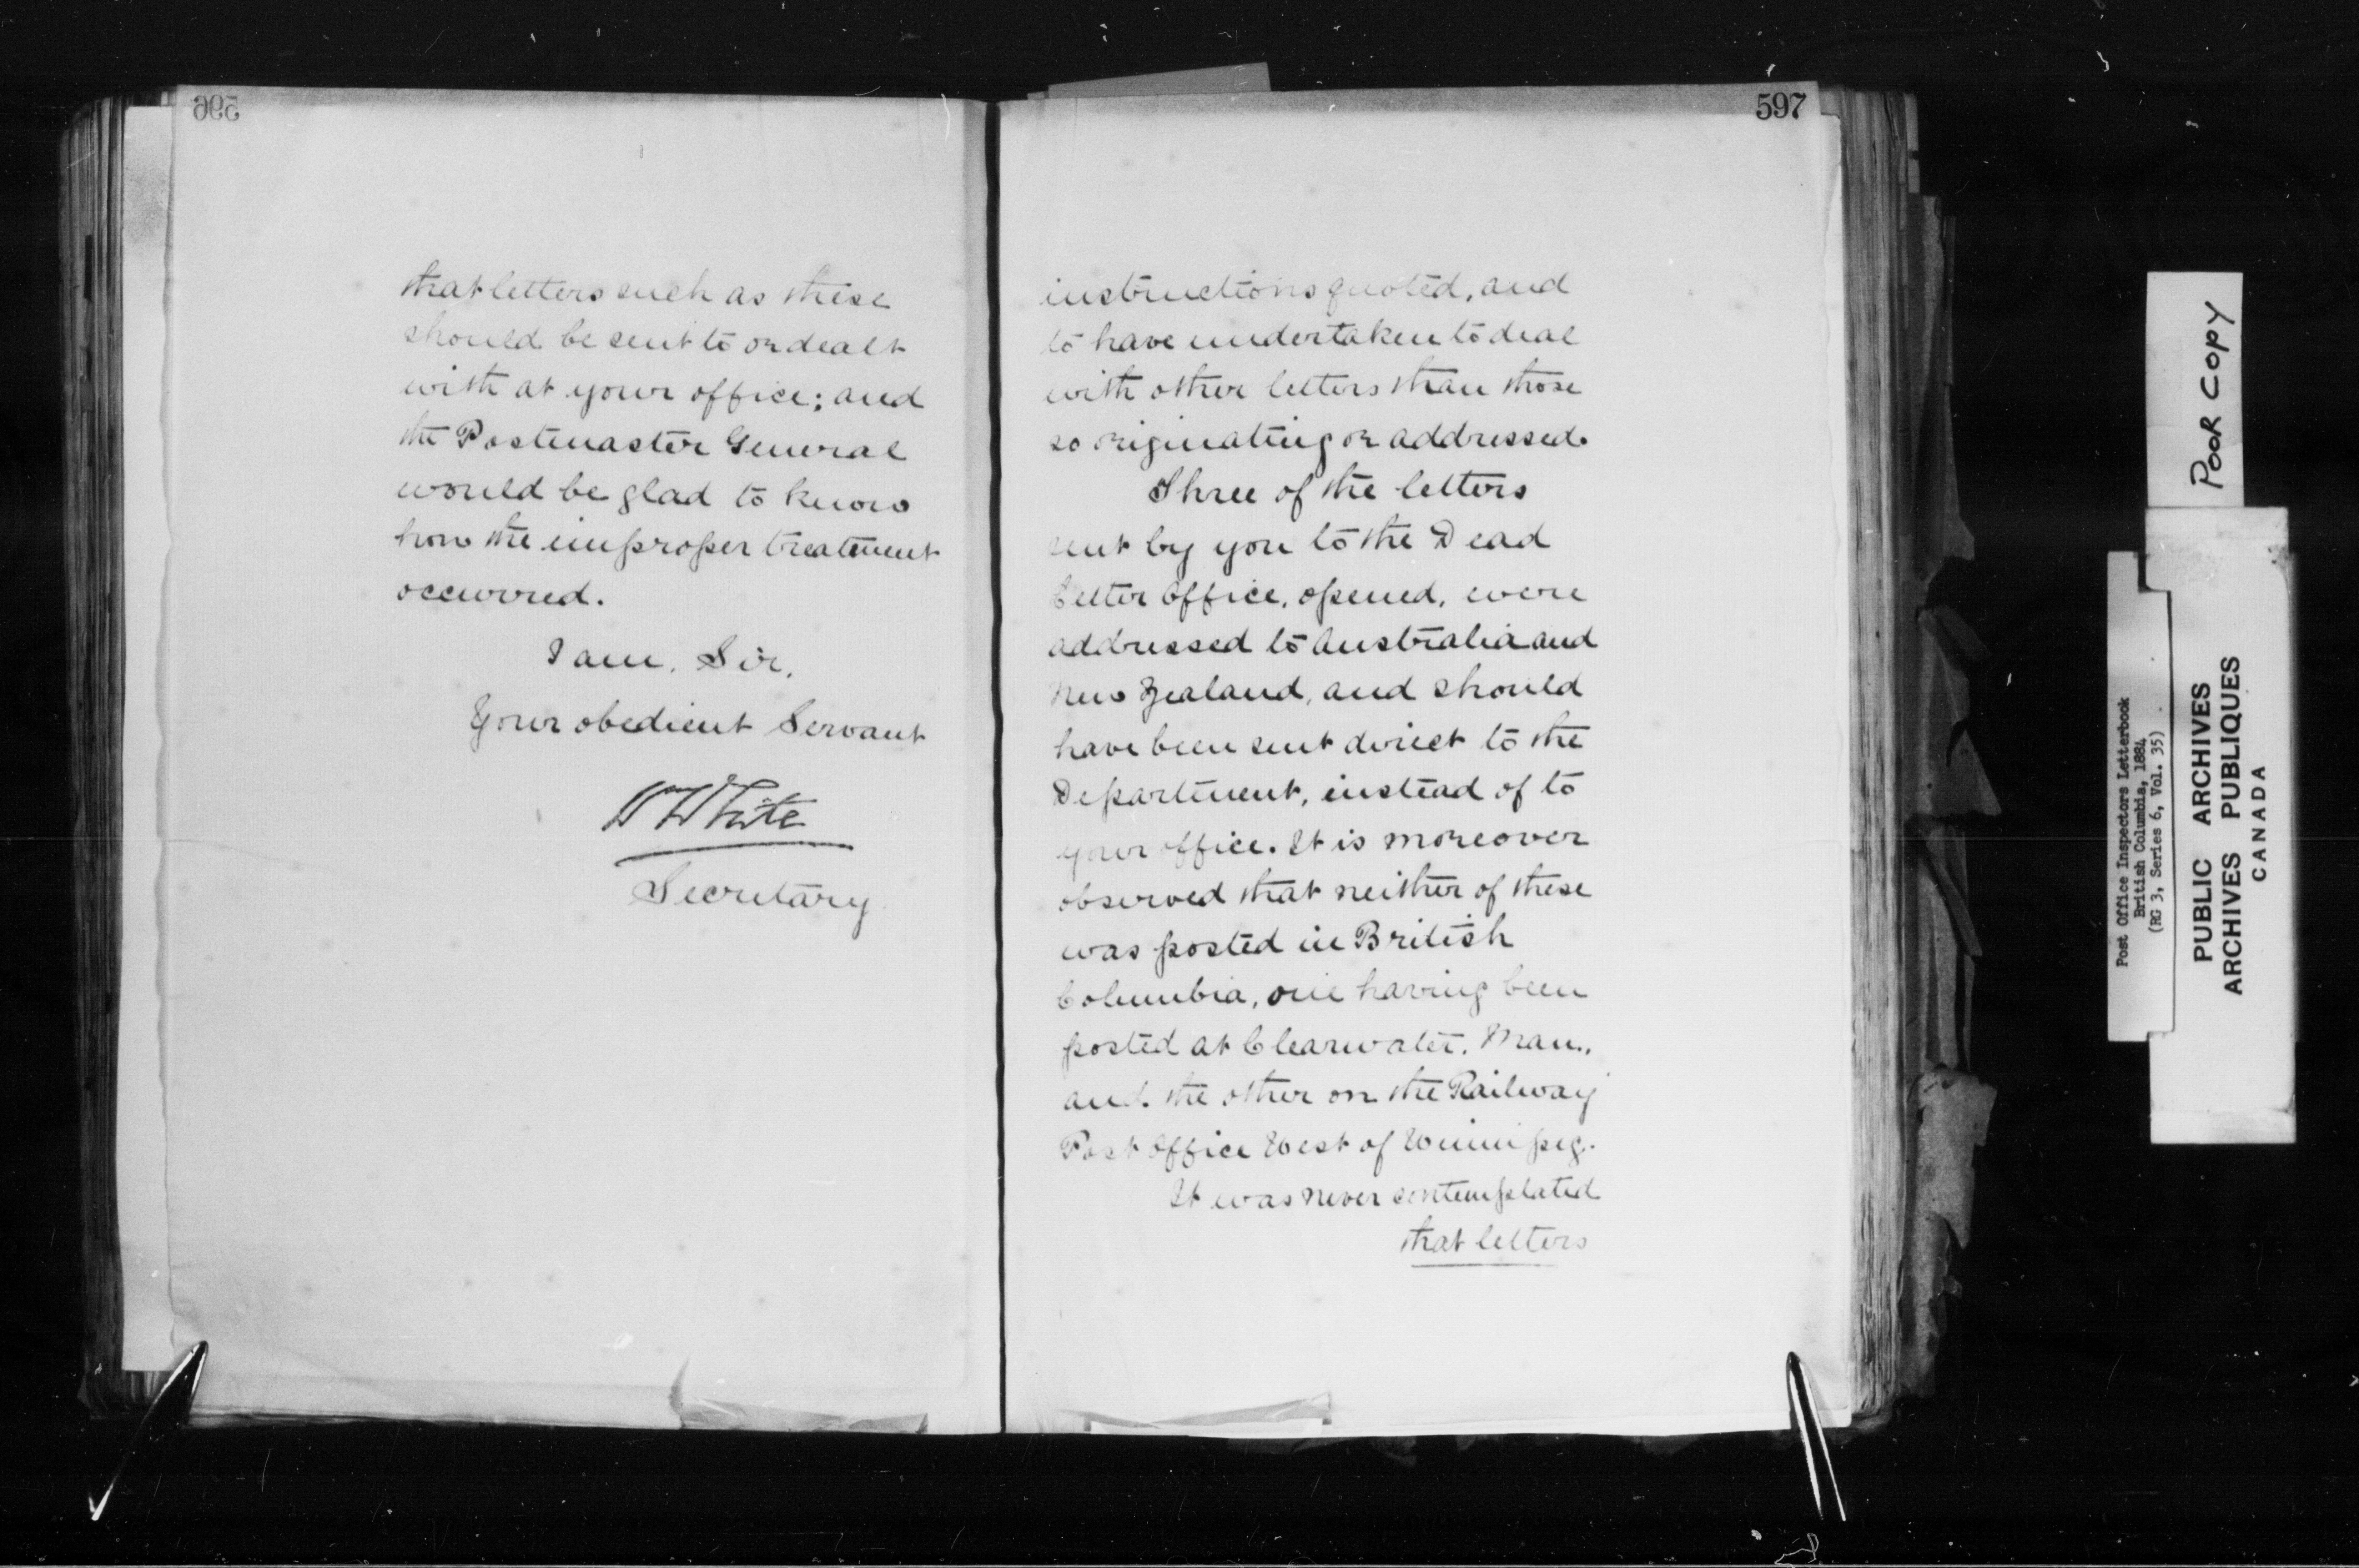 596
that letters such as these
should be sent to or dealt
with at your office; and
the Postmaster General
would be glad to know
how the improper treatment
occurred.
I am, Sir,
Your obedient Servant
W White
Secretary
597
instructions quoted, and
to have undertaken to deal
with other letters than those
so originating or addressed.
Three of the letters
sent by you to the Dead
Letter Office, opened, were
addressed to Australia and
New Zealand, and should
have been sent direct to the
Department, instead of to
your office. It is moreover
observed that neither of these
was posted in British
Columbia, one having been
posted at Clearwater, Man.,
and the other on the Railway
Post Office West of Winnipeg.
It was never contemplated
that letters
POOR COPY
Post Office Inspectors Letterbook
British Columbia, 1884
(RG 3, Series 6, Vol. 35)
PUBLIC ARCHIVES
ARCHIVES PUBLIQUES
CANADA